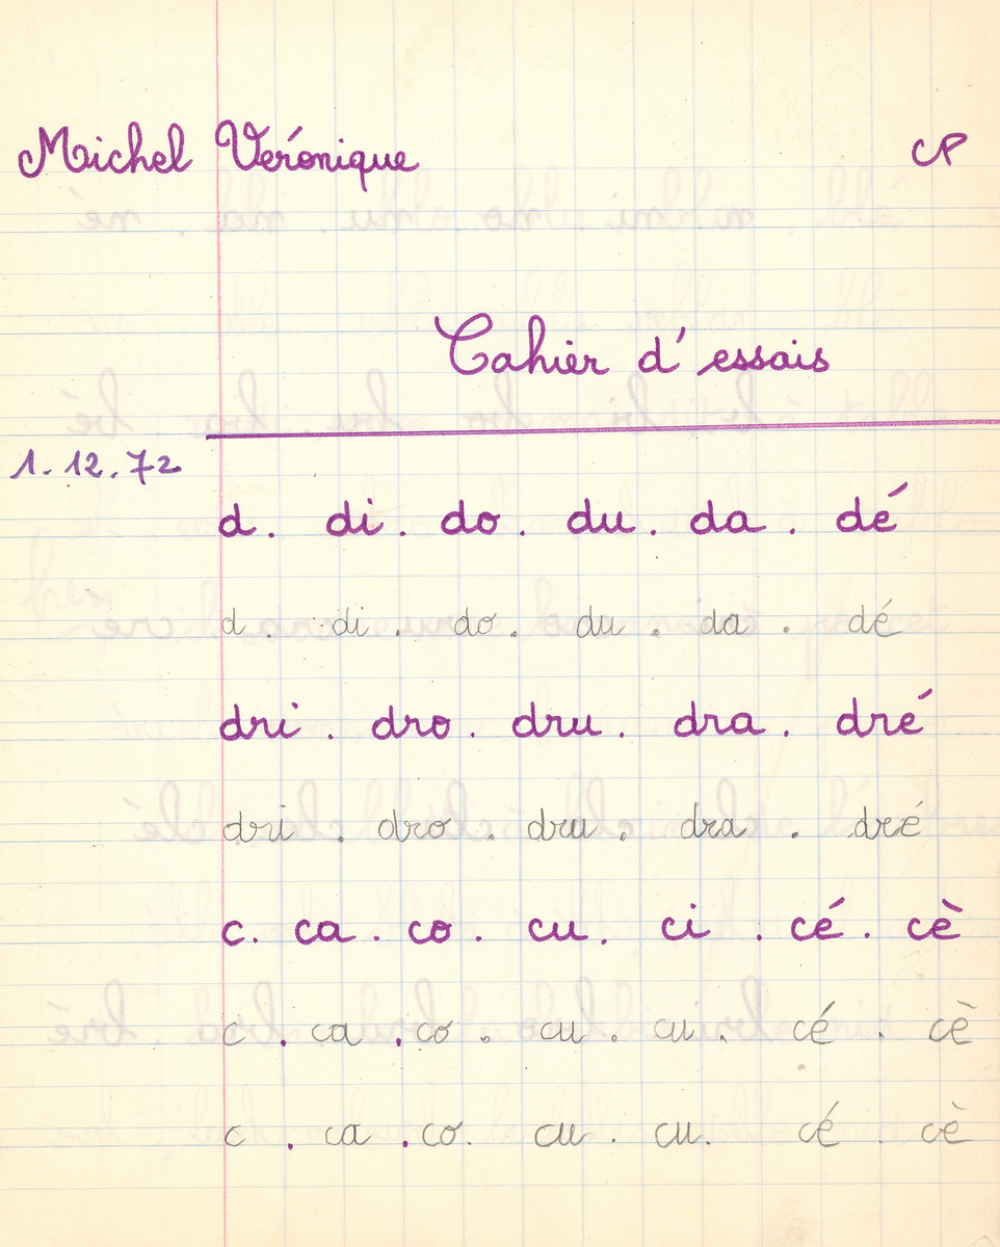 Michel Véronique CP
Cahier d'essais
1.12.72
d. di. do. du. da. dé
d. di. do. du. da. dé
dri. dro. dru. dra. dré
dri. dro. dru. dra. dré
c. ca. co. cu. ci. cé. cè
c. ca. co. cu. cu. cé. cè
c. ca. co. cu. cu. cé. cè